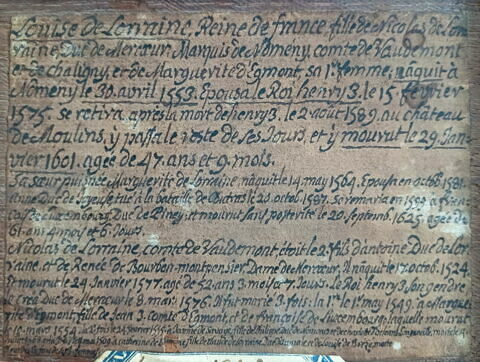 Louise de Lorraine, Reine de france fille de Nicolas de Lor
raine, Duc de Mercœur Marquis de Nomeny, comte de Vaudemont
et de chaligny, et de Marguerite d'Egmont, sa 1re femme; nâquit à
Nomeny le 30. avril 1553. Epousa le Roi henry 3. le 15 fevrier
1575. se retira, après la mort de henry 3. le 2. août 1589. au château
de Moulins, y passa le reste de ses Jours, et y mourut le 29. Jan-
vier 1601. agée de 47. ans et 9. mois.
Sa sœur puinée Marguerite de lorraine, nâquit le 14. may 1564. Epousa en octob. 1581.
Anne Duc de Joyeuse tué à la bataille de Coutras le 20. octob. 1587. Se remaria en 1599. à fran
çois de Luxembourg, Duc de Piney; et mourut sans posterité le 20. Septemb. 1625. agée de
61. ans 4 moys et 6. Jours.
Nicolas de Lorraine, comte de Vaudemont, étoit le 2e. fils d'antoine Duc de Lor-
raine, et de Renée de Bourbon-montpensier Dame de Mercœur. Il nâquit le 17. octob. 1524.
et mourut le 24. Janvier 1577. agé de 52. ans 3. mois 7. Jours. Le Roi henry 3. son gendre
le créa Duc de Mercœur le 8. mar. 1576. Il fut marié 3. fois: la 1re. le 1er. may 1549. à Margue
rite d'Egmont, fille de Jean 3. comte d'Egmont, et de françoise de Luxembourg, laquelle mourut
le 10. mars 1554